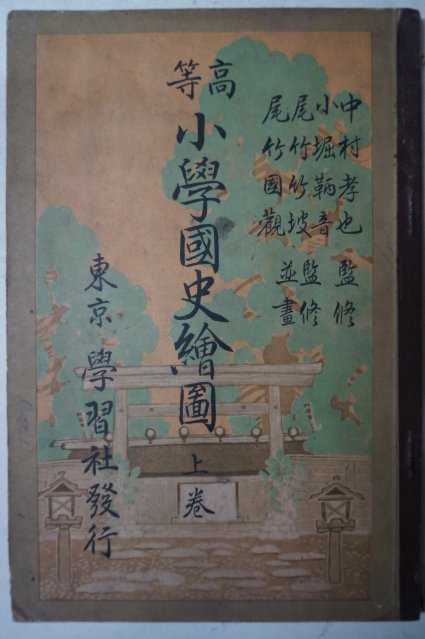 中村孝也 監修
小堀鞆音
尾竹竹坡 監修
尾竹國觀 並畫
高等
小學國史繪圖
上卷
東京 學習社發行